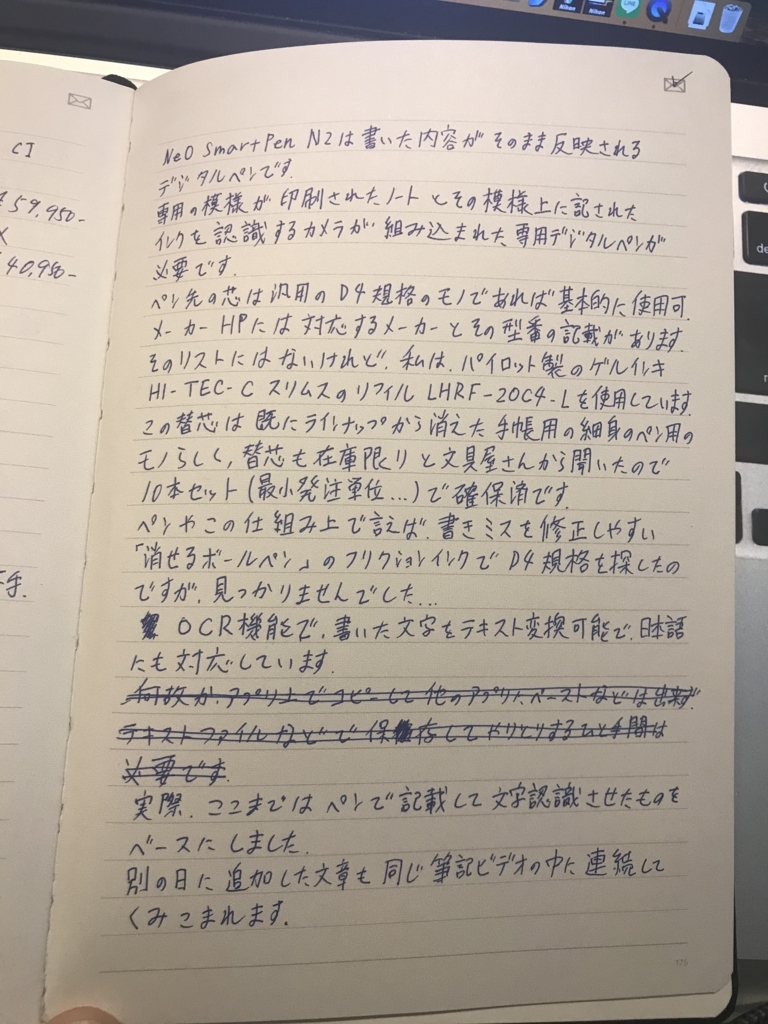 CI
59,950-
40,950-
Neo SmartPen N2は書いた内容がそのまま反映される
デジタルペンです.
専用の模様が印刷されたノートとその模様上に記された
インクを認識するカメラが組み込まれた専用デジタルペンが
必要です.
ペン先の芯は汎用のD4規格のモノであれば基本的に使用可.
メーカーHPには対応するメーカーとその型番の記載があります.
そのリストにはないけれど、私は、パイロット製のゲルインキ
HI-TEC-C スリムスのリフィル LHRF-20C4-Lを使用しています.
この替芯は既にラインナップから消えた手帳用の細身のペン用の
モノらしく,替芯も在庫限りと文具屋さんから聞いたので
10本セット(最小発注単位...)で確保済です.
ペンやこの仕組み上で言えば、書きミスを修正しやすい
「消せるボールペン」のフリクションインクでD4規格を探したの
ですが、見つかりませんでした...
OCR機能で、書いた文字をテキスト変換可能で、日本語
にも対応しています.
何故か、アプリ上でコピーして他のアプリにペーストなどは出来ず.
テキストファイルなどで保存してやりとりするひと手間は
必要です.
実際、ここまではペンで記載して文字認識させたものを
ベースにしました.
別の日に追加した文章も同じ筆記ビデオの中に連続して
くみこまれます.
175